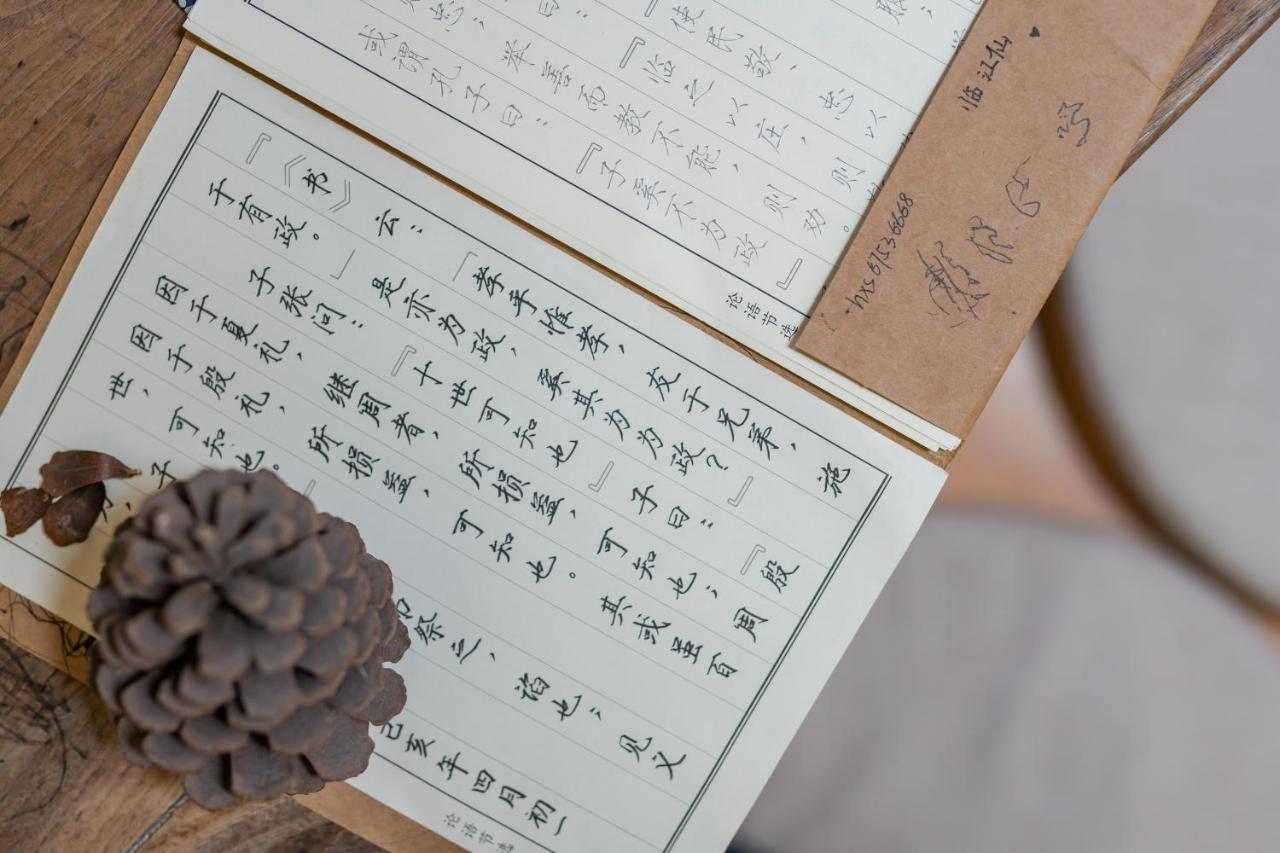 服；
『使民敬、忠以
曰：『临之以庄，则
忠；举善而教不能，则劝。
或谓孔子曰：『子奚不为政』
论语节选
临江仙
『《书》云：「孝乎惟孝，友于兄弟，施
于有政。」是亦为政，奚其为为政？」
子张问：『十世可知也』子曰：『殷
因于夏礼，继周者，所损益，可知也；周
因于殷礼，所损益，可知也。其或至百
世，可知也。』
子
祭之，谄也；见义
己亥年四月初一
论语节选